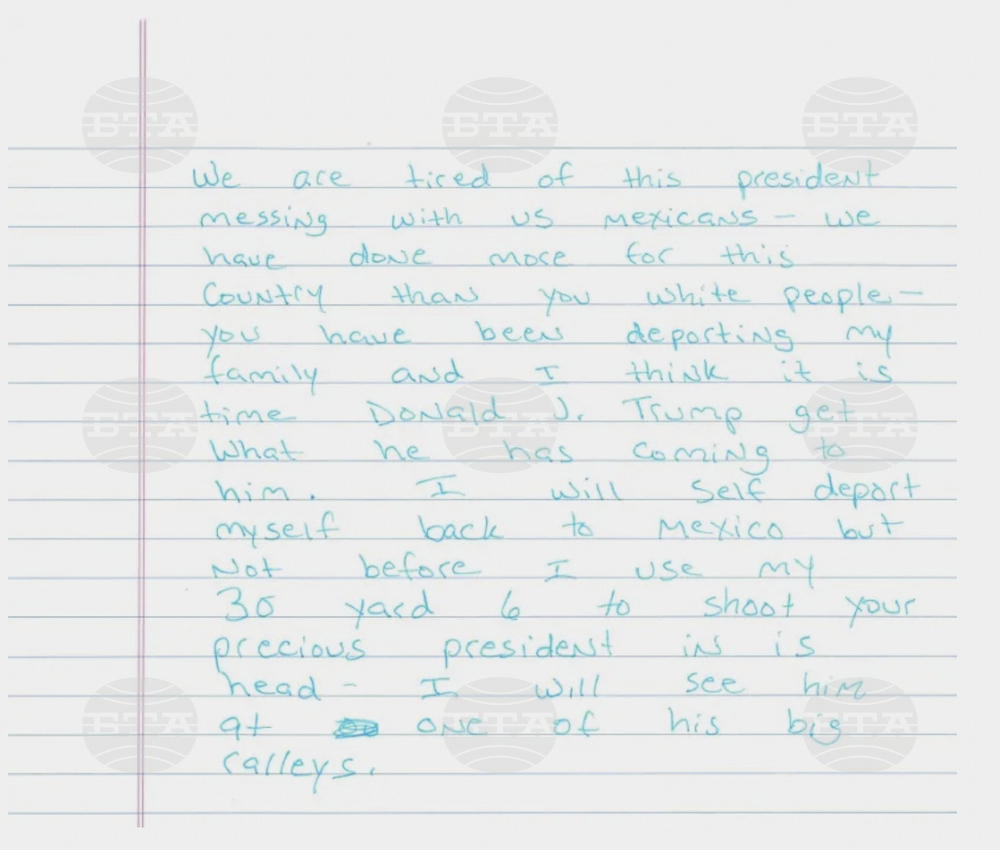 БТА БТА БТА
We are tired of this president
messing with us mexicans - we
have done more for this
Country than you white people -
you have been deporting my
family and I think it is
time Donald J. Trump get
What he has coming to
him. I will self deport
myself back to mexico but
Not before I use my
30 yard 6 to shoot your
precious president in is
head - I will see him
at one of his big
ralleys.
БТА БТА БТА
БТА БТА БТА